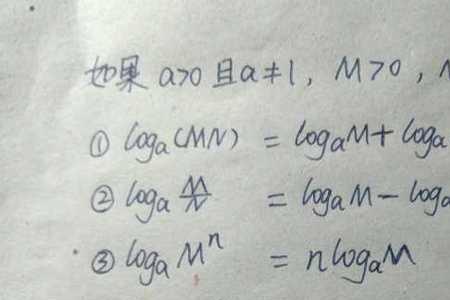 如果 a>0 且 a≠1, M>0,
① logₐ(MN) = logₐM + logₐ
② logₐ M/N = logₐM - logₐ
③ logₐ Mⁿ = n logₐM